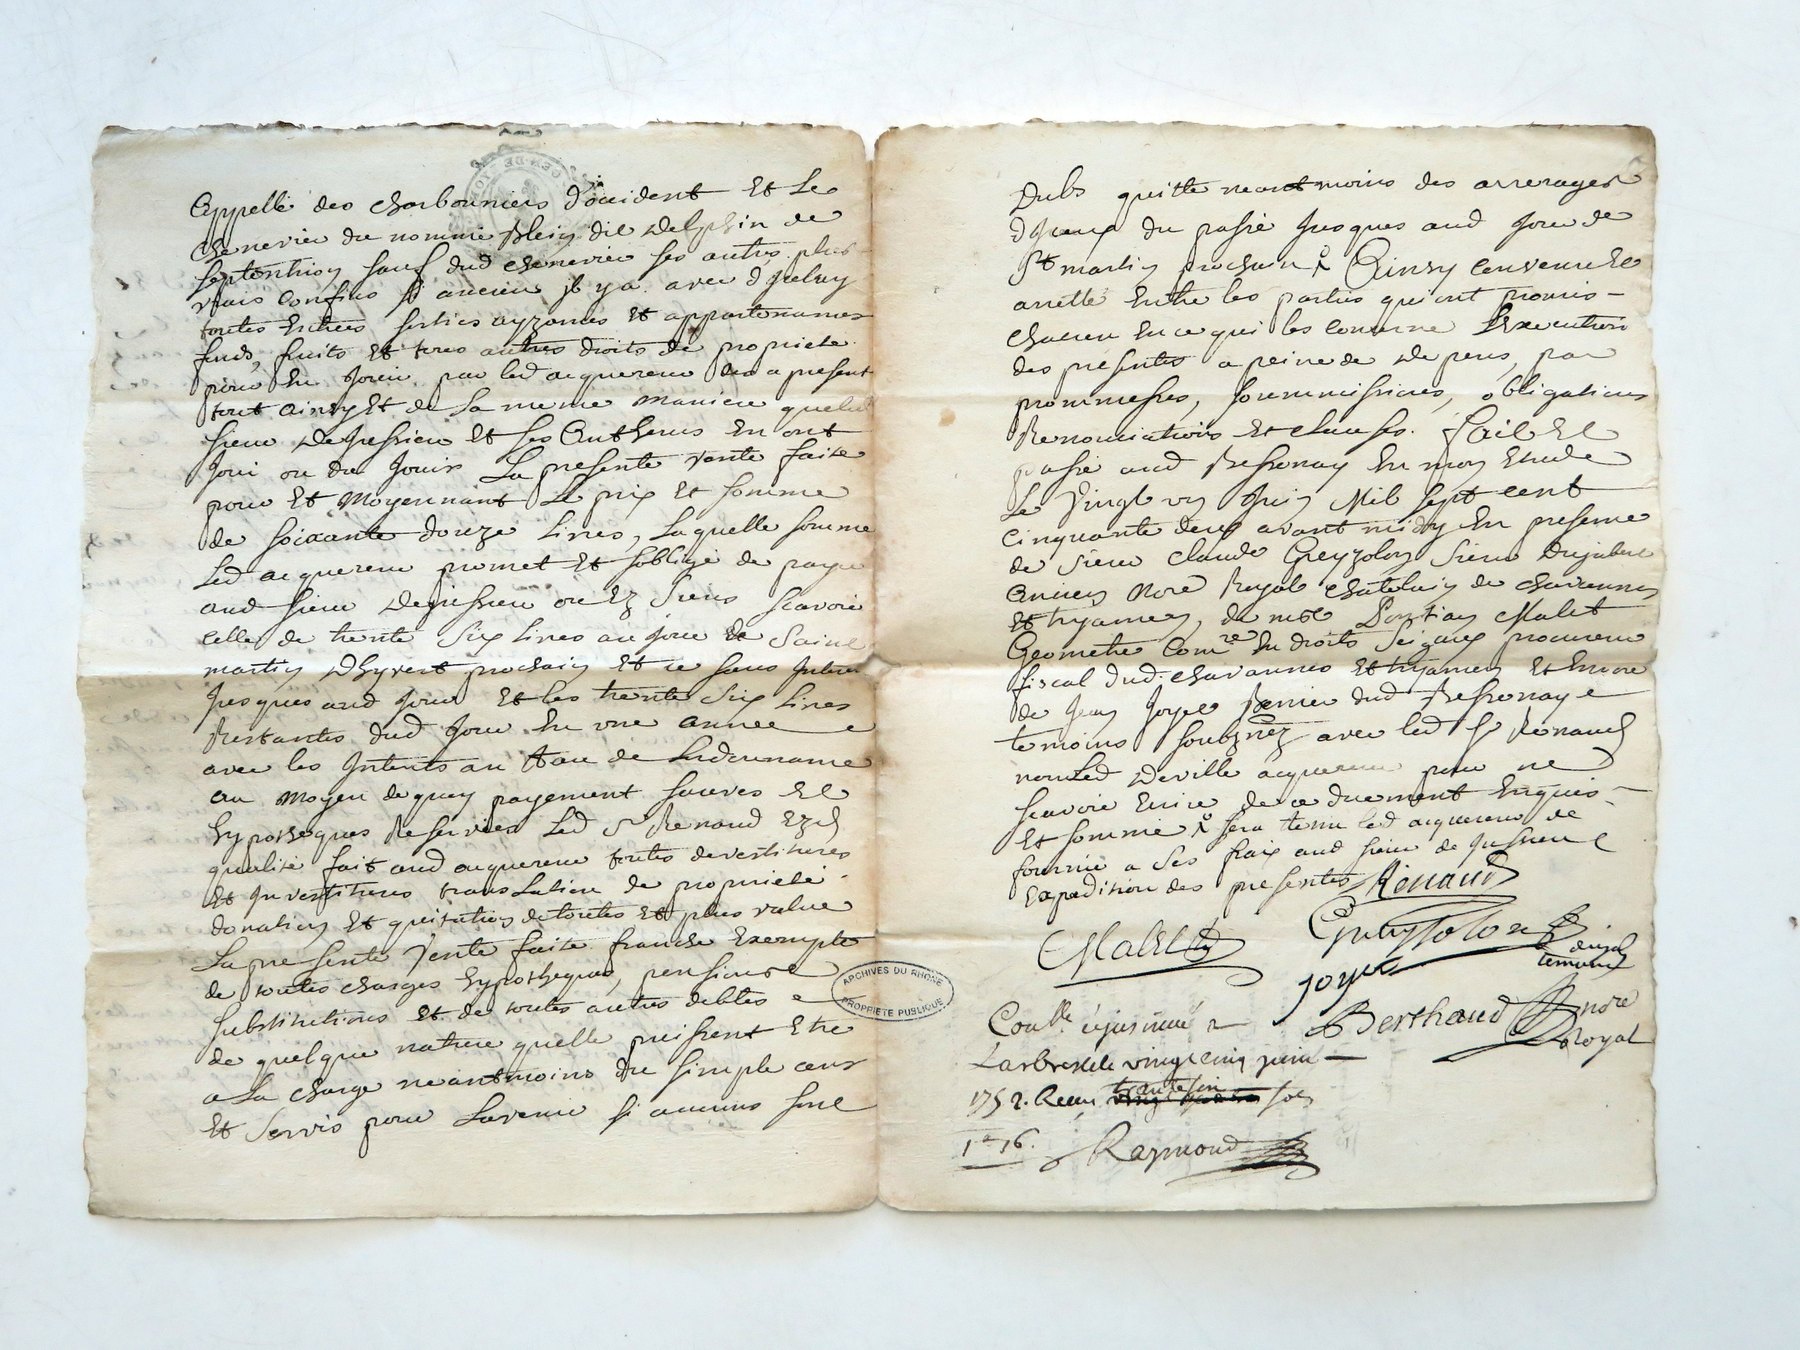 appellé des charbonniers d'occident Et Le
chenevier du nommé Blein dit Delphin de
septentrion sauf dud chenevier ses autres plus
vrais confins sy aucuns jl y a. avec d
toutes Entrées sorties ayzances Et appartenances
fonds, fruits Et tous autres droits de proprieté
pour En jouir par led acquereur des a present
tout ainsy Et de La meme maniere que led
sieur Et ses Autheurs En ont
joui ou du jouir La presente vente faite
pour Et moyennant Le prix Et somme
de soixante douze Livres, Laquelle somme
Led acquereur promet Et s'oblige de payer
aud sieur ou Ez siens scavoir
celle de trente six Livres au jour de Saint
martin d'hyvert prochain Et ce sans jnterets
jusques aud jour Et les trente six Livres
Restantes dud jour En une année
avec les jnterets au taux de Lordonnance
au moyen de quoy payement sauves Et
hypotheques Reservées Led Sr Renaud Ezd
qualité fait aud acquereur toutes devestitures
Et jnvestitures translation de proprieté
donation Et quitation de toutes Et plus value
La presente Vente faite franche Exempte
de toutes charges hypotheques, pensions
substitutions Et de toutes autres debtes
de quelque nature quelle puissent Etre
a La charge neantmoins du simple cens
Et Servis pour Lavenir si aucuns sont
Dubs quitte neantmoins des arrerages
d'jceux du passé jusques aud jour de
St martin prochain Ainsy convenu Et
arretté Entre les parties qui ont promis
chacun En ce qui les concerne L'Execution
des presentes a peine de Depens, par
prommesses, soummissions, obligations
Renonciations Et clauses. Fait Et
passé aud Bessenay En mon Etude
Le Vingt un juin Mil sept cent
cinquante deux avant midy En presence
de sieur Claude Greyzolon sieur
ancien nore Royal chatelain de chavannes
Et de mtre Malet
Geometre Comre En droits Seigaux procureur
fiscal dud. chavannes Et Et Encore
de jean Joyet dud Bessenay
temoins soubznez avec led Sr Renaud
non Led Deville acquereur pour ne
scavoir Ecrire de ce duement Enquis
Et sommé sera tenu led acquereur de
fournir a Ses fraix aud sieur de
Expedition des presentes Renaud
Malet Greyzolon
temoin
joyet
Conlle et jnsinué a Berthaud nore
Larbresle le vingt cinq juin Royal
1752. Recu sols
Raymond
ARCHIVES DU RHÔNE
PROPRIÉTÉ PUBLIQUE